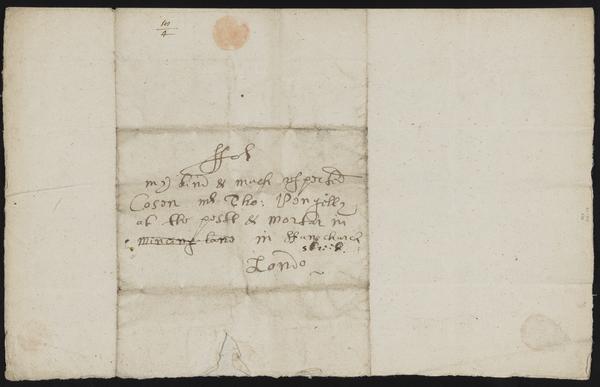 10
4
ffor
my kind & much respected
Cosen mr Tho: Pengelly
at the pestt & mortar in
Mincing lane in ffanchurch
street.
Londo